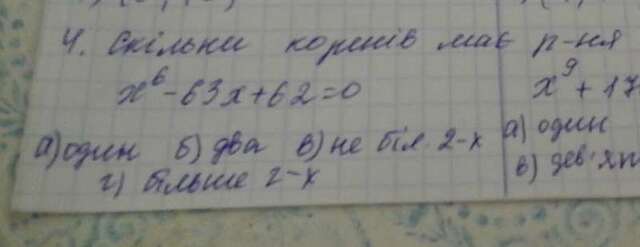 4. Скільки коренів має р-ня
x⁶ - 63x + 62 = 0
а) один б) два в) не біл. 2-х
г) більше 2-х
x⁹ + 17
а) один
в) дев'ят